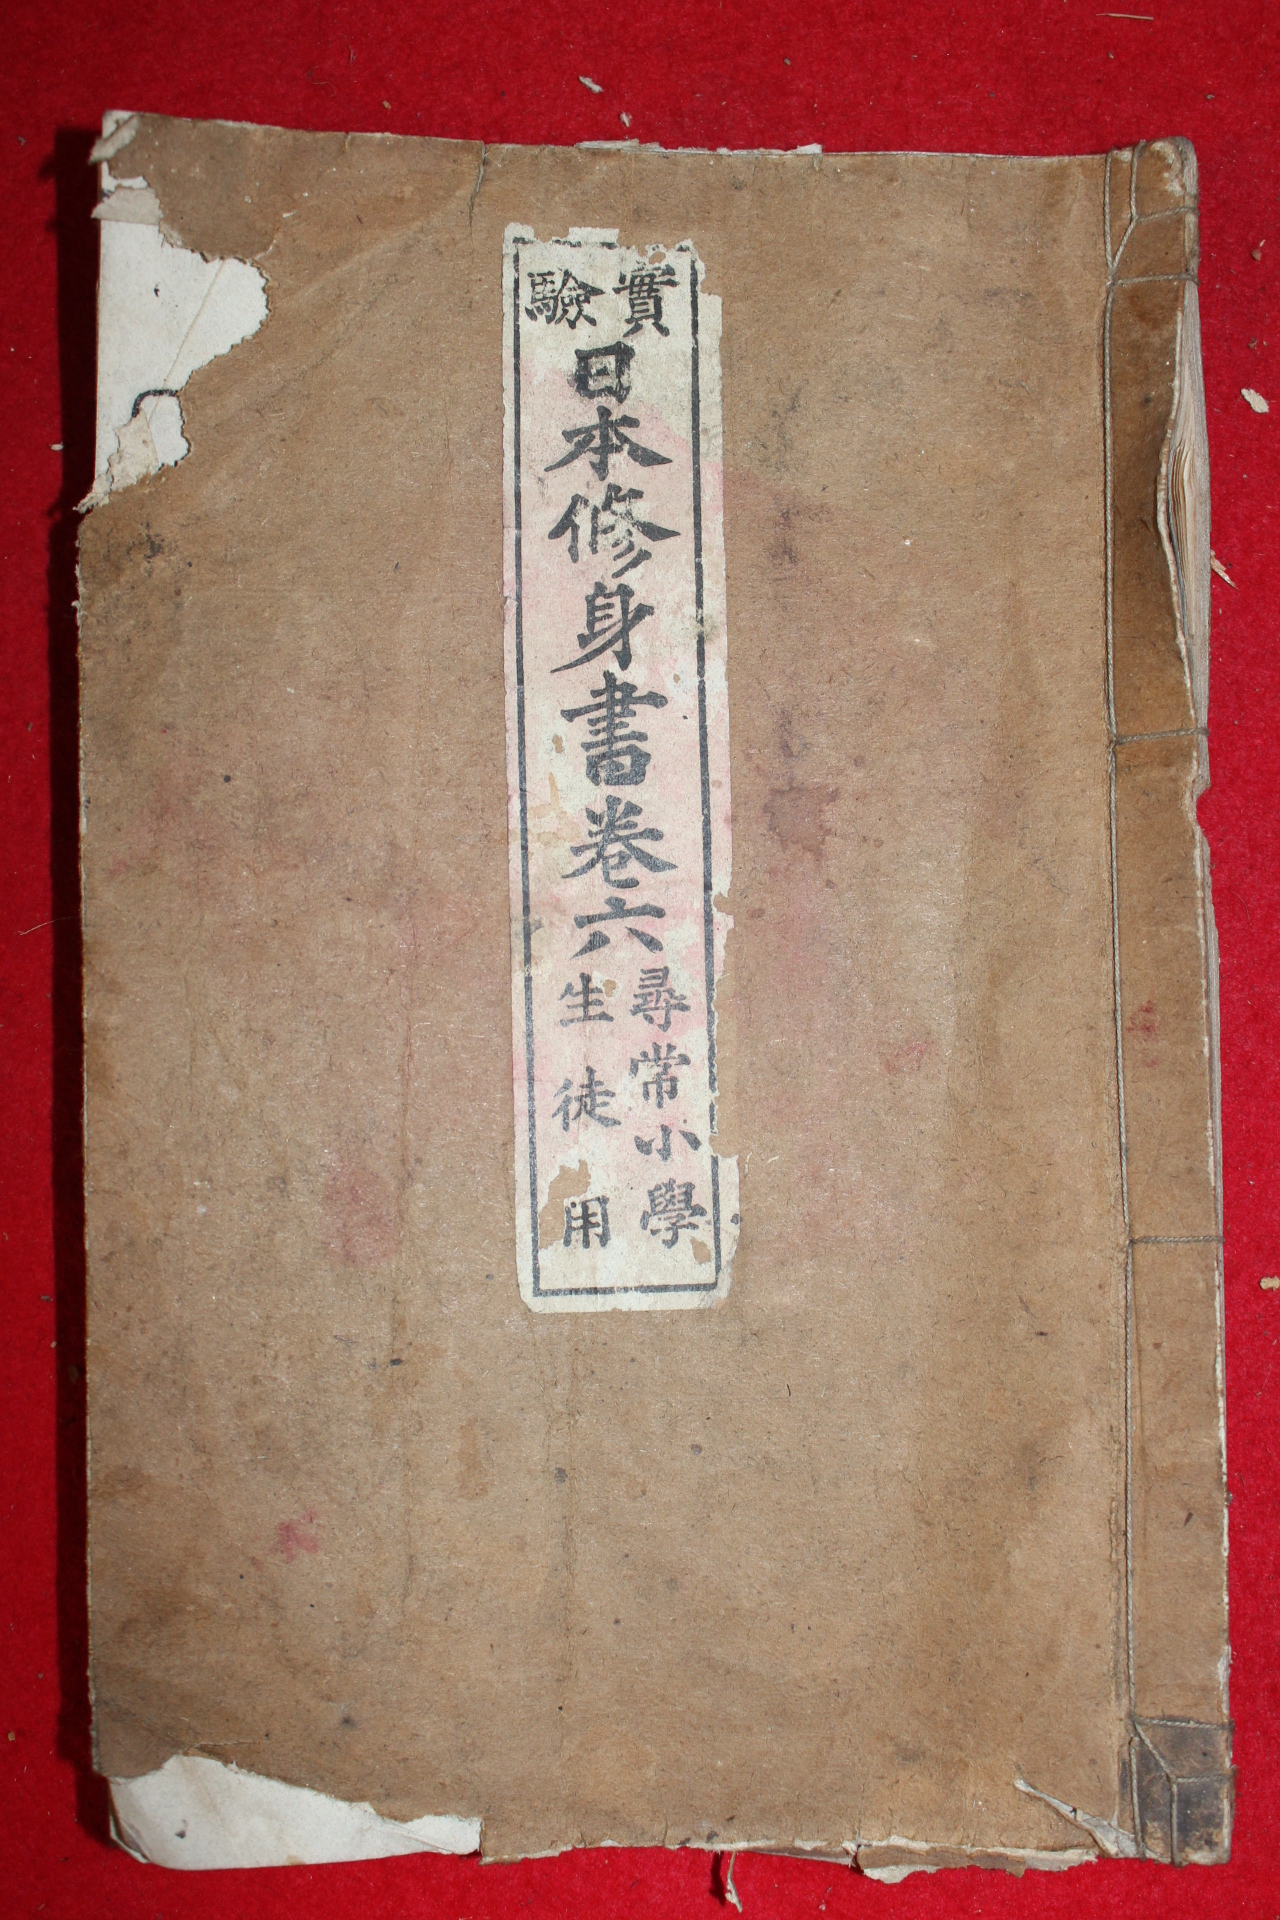 實驗
日本修身書卷六
尋常小學
生徒用